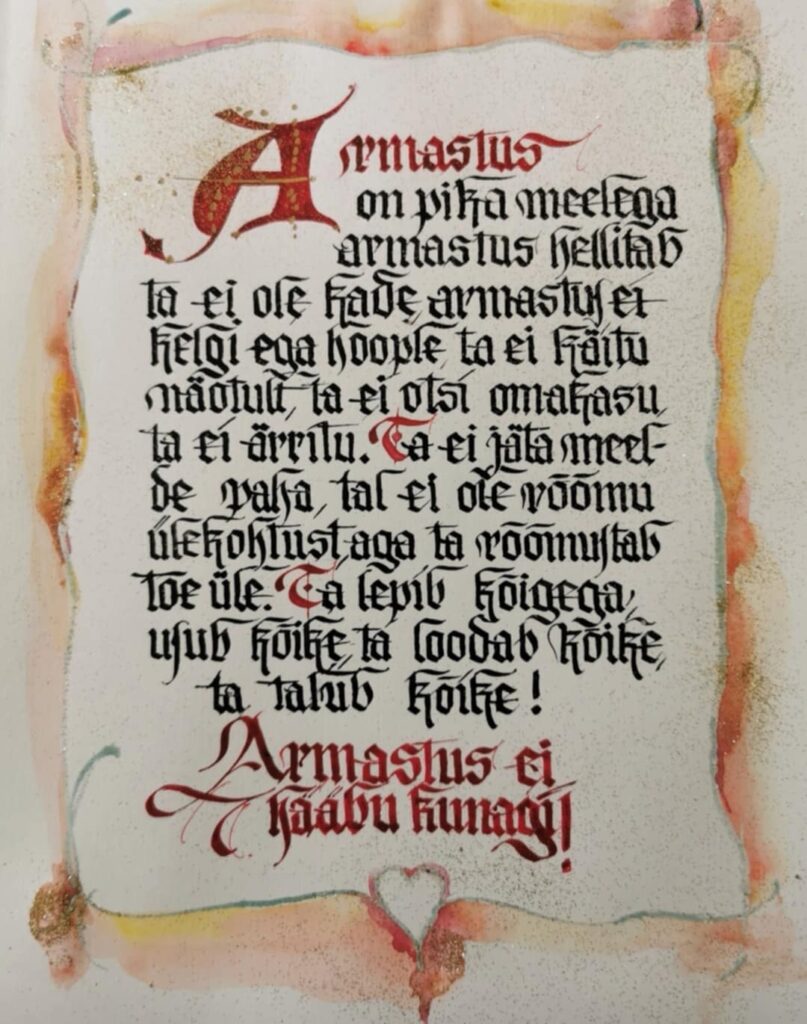 Armastus
on pika meelega
armastus hellitab
ta ei ole kade, armastus ei
kelgi ega hoople, ta ei käitu
näotult, ta ei otsi omakasu,
ta ei ärritu. Ta ei jäta meel-
de paha, tal ei ole rõõmu
ülekohtust, aga ta rõõmustab
tõe üle. Ta lepib kõigega,
usub kõike, ta loodab kõike,
ta talub kõike!
Armastus ei
hääbu kunagi!